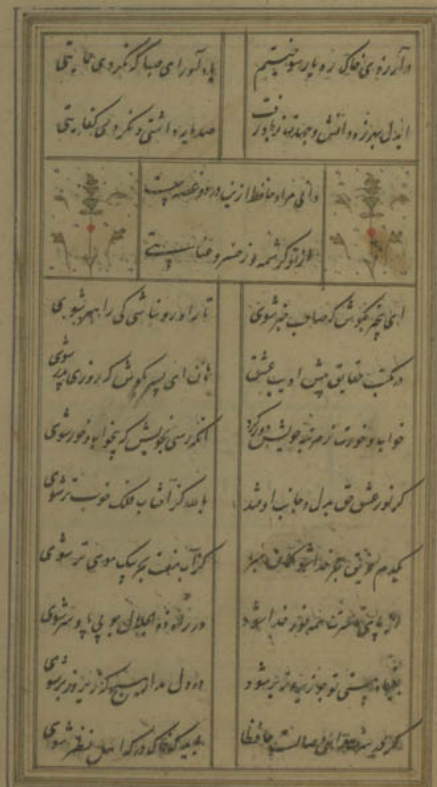 در آرزوی خاک ره یار سوختیم یاد آور ای صبا که نکردی حمایتی
ایدل بهرزه دانش و رفت صد مایه داشتی و نکردی کفایتی
دانی مراد حافظ ازین درد و غصه چیست
از تو کرشمه و ز خسرو عنایتی
ای بیخبر بکوش که صاحب خبر شوی تا راه رو نباشی کی راهبر شوی
در مکتب حقایق پیش ادیب عشق هان ای پسر بکوش که روزی پدر شوی
خواب و خورت ز مرتبه خویش دور کرد آنگه رسی بخویش که بیخواب و خور شوی
گر نور عشق حق بدل و جانت اوفتد بالله کز آفتاب فلک خوب تر شوی
یکدم غریق بحر خدا شو گمان مبر کز آب هفت بحر بیک موی تر شوی
از پای تا سرت همه نور خدا شود در راه ذو الجلال چو بی پا و سر شوی
بنیاد هستی تو چو زیر و زبر شود در دل مدار هیچ که زیر و زبر شوی
گر در سرت هوای وصالست حافظا باید که خاک درگه اهل نظر شوی